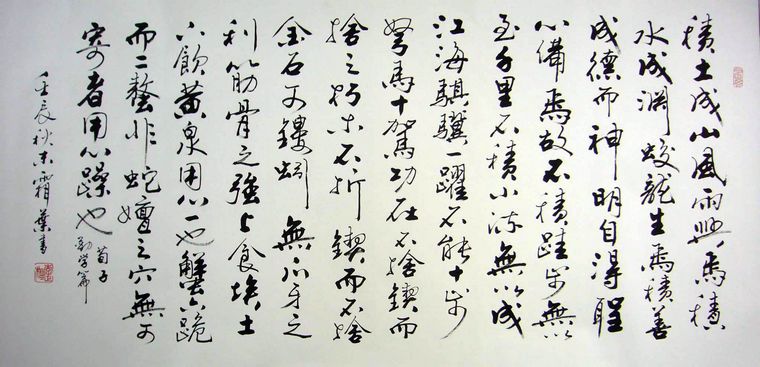 積土成山風雨興焉積
水成淵蛟龍生焉積善
成德而神明自得聖
心備焉故不積跬步無以
至千里不積小流無以成
江海騏驥一躍不能十步
駑馬十駕功在不捨鍥而
捨之朽木不折鍥而不捨
金石可鏤蚓無爪牙之
利筋骨之強上食埃土
下飲黃泉用心一也蟹六跪
而二螯非蛇蟺之穴無可
寄者用心躁也
荀子
劝学篇
壬辰秋末霜葉書